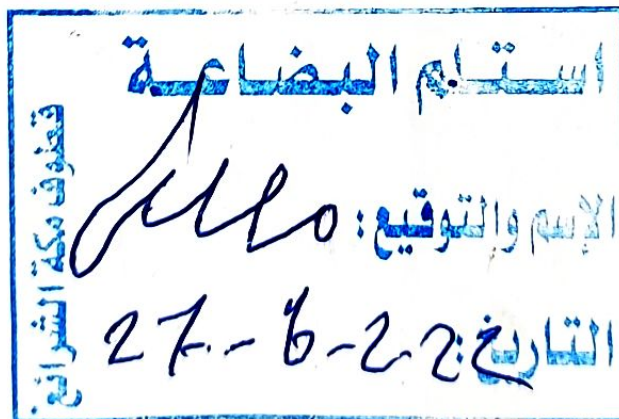 استلم البضاعة
الإسم والتوقيع:
التاريخ: 27-6-22
قطوف مكة الشرائع